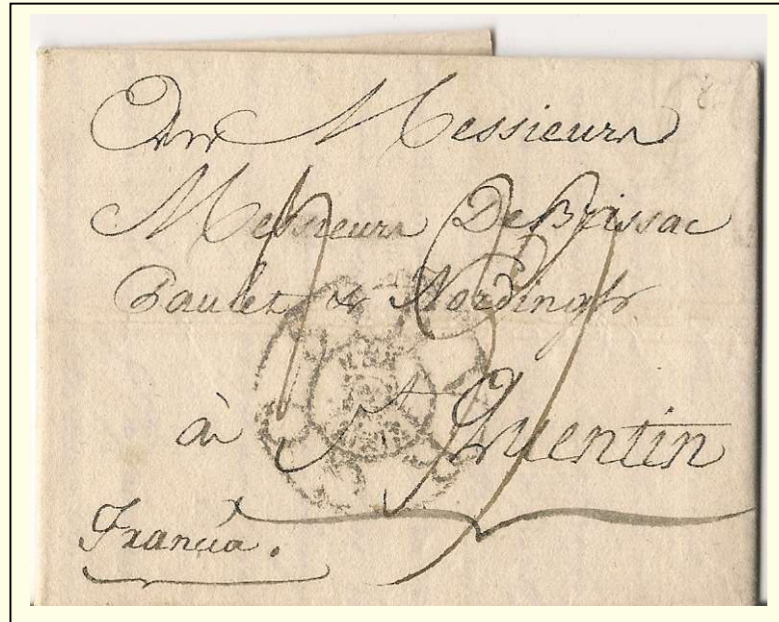 Messieurs
Messieurs De Brissac
Paulet & Nordingh
à St Quentin
Francia.